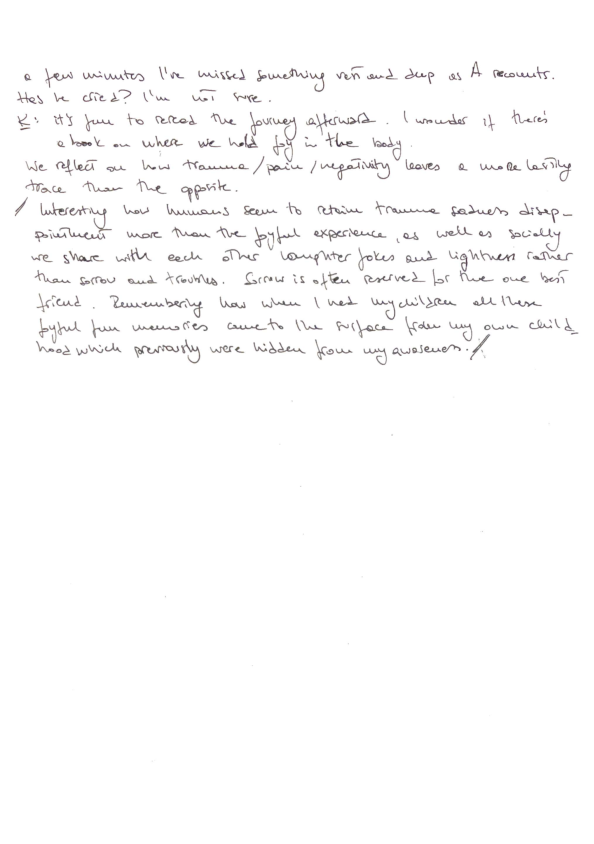 a few minutes I've missed something very and deep as A recounts.
Has he cried? I'm not sure.
K: it's fun to reread the journey afterward. I wonder if there's
a book on where we hold joy in the body.
We reflect on how trauma/pain/negativity leaves a more lasting
trace than the opposite.
/ Interesting how humans seem to retain trauma sadness disap-
pointment more than the joyful experience, as well as socially
we share with each other laughter jokes and lightness rather
than sorrow and troubles. Sorrow is often reserved for the one best
friend. Remembering how when I had my children all these
joyful fun memories came to the surface from my own child
hood which previously were hidden from my awareness. /